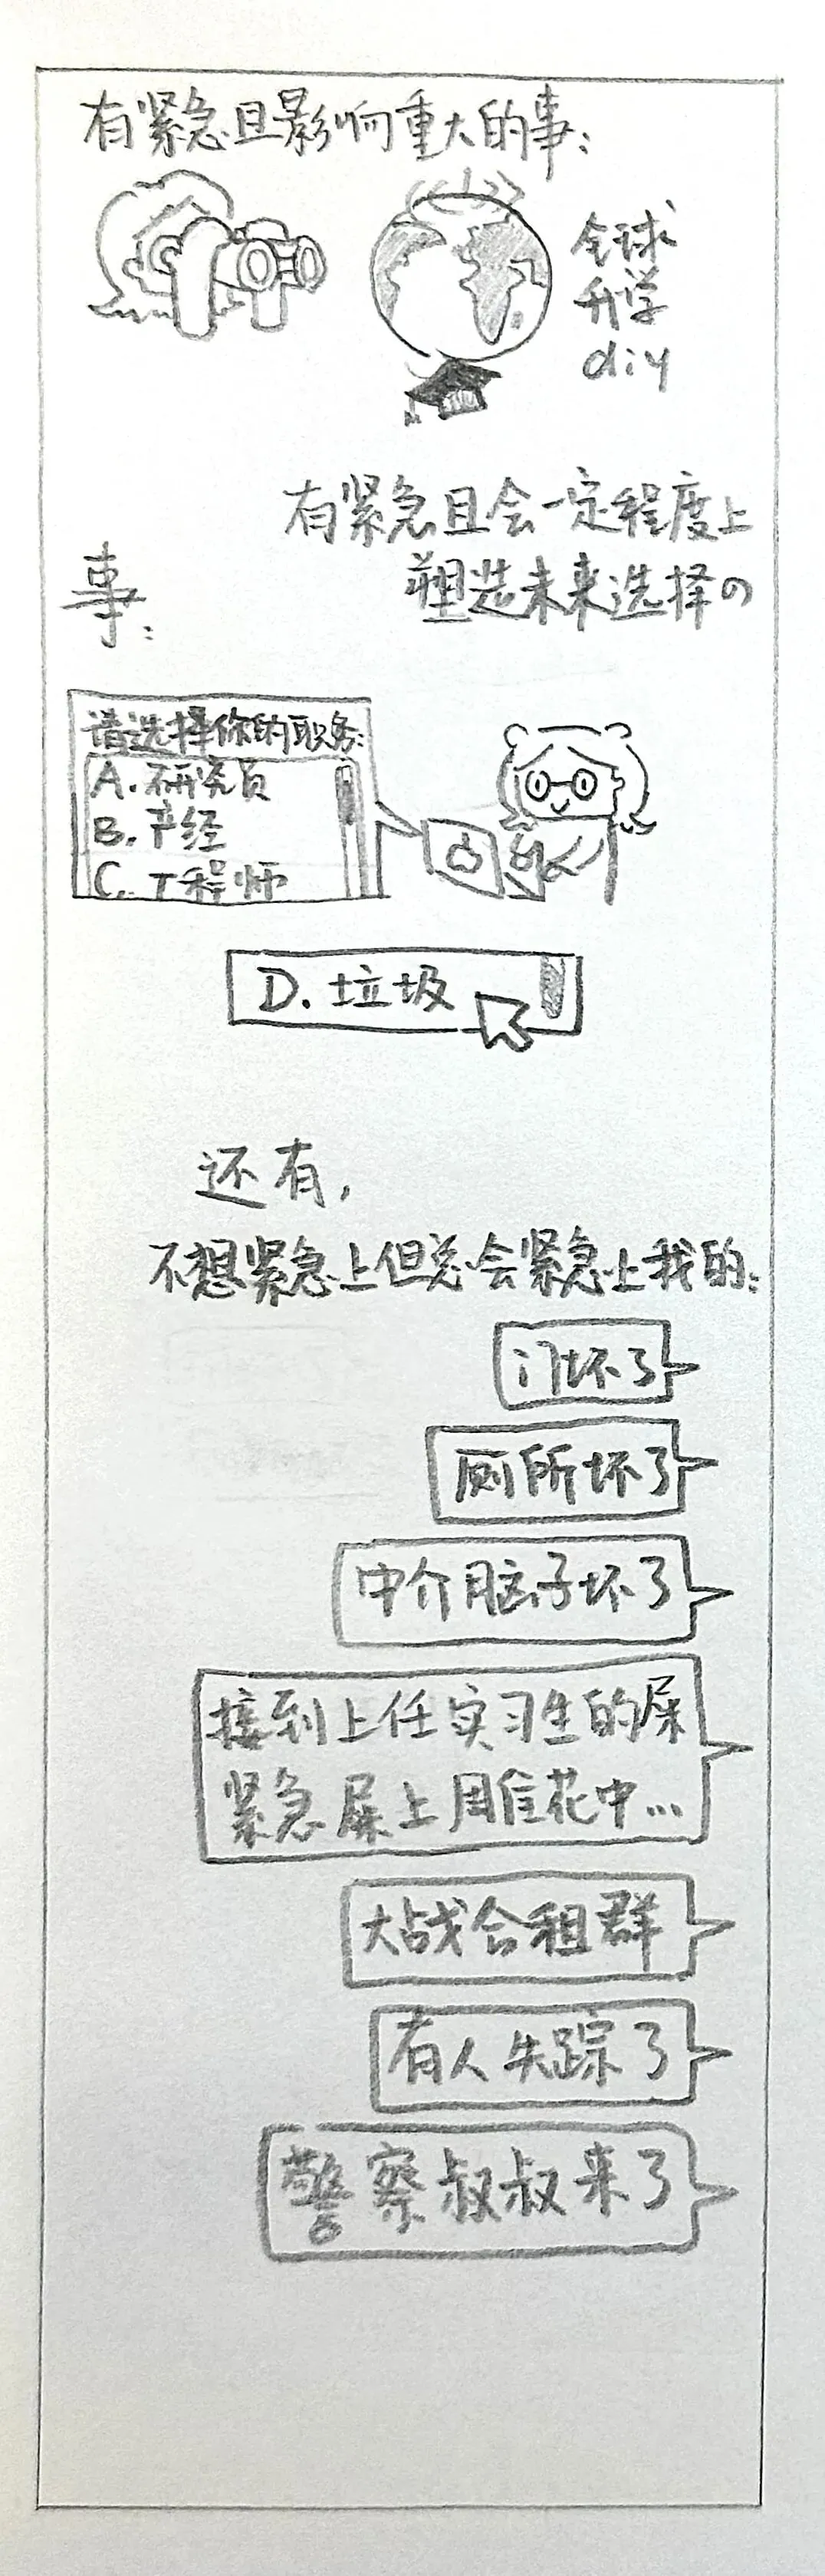 有紧急且影响重大的事：
全球
升学
diy
有紧急且会一定程度上
塑造未来选择の
事：
请选择你的职务：
A. 研究员
B. 产经
C. 工程师
D. 垃圾
还有，
不想紧急上但总会紧急上我的：
门坏了
厕所坏了
中介脑子坏了
接到上任实习生的屎
紧急屎上雕花中…
大战合租群
有人失踪了
警察叔叔来了